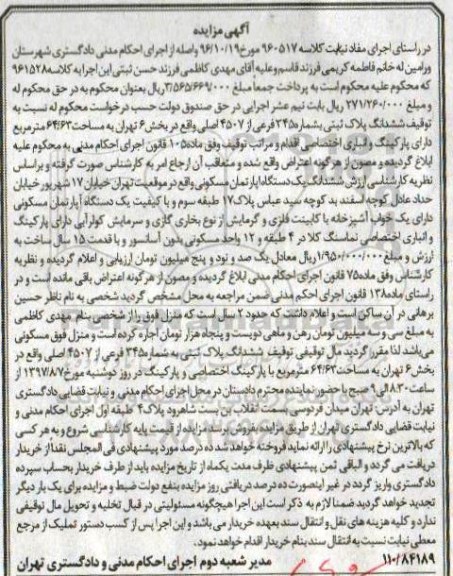 آگهی مزایده
در راستای اجرای مفاد نیابت کلاسه ۹۶۰۵۱۷ مورخ ۹۶/۱۰/۱۹ واصله از اجرای احکام مدنی دادگستری شهرستان
ورامین له خانم فاطمه کریمی فرزند قاسم وعلیه آقای مهدی کاظمی فرزند حسن ثبتی این اجرا به کلاسه ۹۶۱۵۲۸
که محکوم علیه محکوم است به پرداخت جمعاً مبلغ ۳/۵۶۵/۶۶۹/۰۰۰ ریال بعنوان محکوم به در حق محکوم له
و مبلغ ۲۷۱/۲۶۰/۰۰۰ ریال بابت نیم عشر اجرایی در حق صندوق دولت حسب درخواست محکوم له نسبت به
توقیف ششدانگ پلاک ثبتی بشماره ۳۴۵ فرعی از ۴۵۰۷ اصلی واقع در بخش ۶ تهران به مساحت ۶۴/۶۳ مترمربع
دارای پارکینگ و انباری اختصاصی اقدام و مراتب توقیف وفق ماده ۱۰۵ قانون اجرای احکام مدنی به محکوم علیه
ابلاغ گردیده و مصون از هرگونه اعتراض واقع شده و متعاقب آن ارجاع امر به کارشناس صورت گرفته و براساس
نظریه کارشناسی ارزش ششدانگ یک دستگاه آپارتمان مسکونی واقع در موقعیت تهران خیابان ۱۷ شهریور خیابان
حداد عادل کوچه اسفند بد کوچه سید عباس پلاک ۱۷ طبقه سوم و با کیفیت یک دستگاه آپارتمان مسکونی
دارای یک خواب آشپزخانه با کابینت فلزی و گرمایش از نوع بخاری گازی و سرمایش کولر آبی دارای پارکینگ
و انباری اختصاصی نماسنگ کلا در ۴ طبقه و ۱۲ واحد مسکونی بدون آسانسور و با قدمت ۱۵ سال ساخت به
ارزش و مبلغ ۱/۹۵۰/۰۰۰/۰۰۰ ریال معادل یکصد و نود و پنج میلیون تومان ارزیابی و اعلام گردیده و نظریه
کارشناس وفق ماده ۷۵ قانون اجرای احکام مدنی ابلاغ گردیده و مصون از هرگونه اعتراض باقی مانده است و در
راستای ماده ۱۳۸ قانون اجرای احکام مدنی ضمن مراجعه به محل مشخص گردید شخصی به نام ناظر حسین
برهانی در آن ساکن است و اعلام داشت که حدود ۲ سال است که منزل فوق را از شخصی بنام مهدی کاظمی
به مبلغ سی و سه میلیون تومان رهن و ماهی دویست و پنجاه هزار تومان اجاره کرده است و منزل فوق مسکونی
می‌باشد لذا مقرر گردید مال توقیفی توقیف ششدانگ پلاک ثبتی به شماره ۳۴۵ فرعی از ۴۵۰۷ اصلی واقع در
بخش ۶ تهران به مساحت ۶۴/۶۳ مترمربع با پارکینگ اختصاصی و پارکینگ در روز دوشنبه مورخ ۱۳۹۷/۸/۷ از
ساعت ۸:۳۰ الی ۹ صبح با حضور نماینده محترم دادستان در محل اجرای احکام مدنی و نیابت قضایی دادگستری
تهران به آدرس: تهران میدان فردوسی بسمت انقلاب بن بست شاهرود پلاک ۴ طبقه اول اجرای احکام مدنی و
نیابت قضایی دادگستری تهران از طریق مزایده بفروش برسد مزایده از قیمت پایه کارشناسی شروع و به هر کسی
که بالاترین نرخ پیشنهادی را ارائه نماید فروخته خواهد شد ده درصد مورد پیشنهادی فی المجلس نقداً از خریدار
دریافت می گردد و الباقی ثمن پیشنهادی ظرف مدت یکماه از تاریخ مزایده باید از طرف خریدار بحساب سپرده
دادگستری واریز گردد در غیر اینصورت ده درصد دریافتی روز مزایده بنفع دولت ضبط و مزایده برای یک بار دیگر
تجدید خواهد گردید ضمنا لازم به ذکر است این اجرا هیچگونه مسئولیتی در قبال تخلیه و تحویل مال توقیفی
ندارد و کلیه هزینه های نقل و انتقال سند بعهده خریدار می باشد و این اجرا پس از کسب دستور تملیک از مرجع
معطی نیابت نسبت به انتقال سند بنام خریدار اقدام خواهد نمود.
۱۱۰/۸۴۱۸۹ مدیر شعبه دوم اجرای احکام مدنی و دادگستری تهران